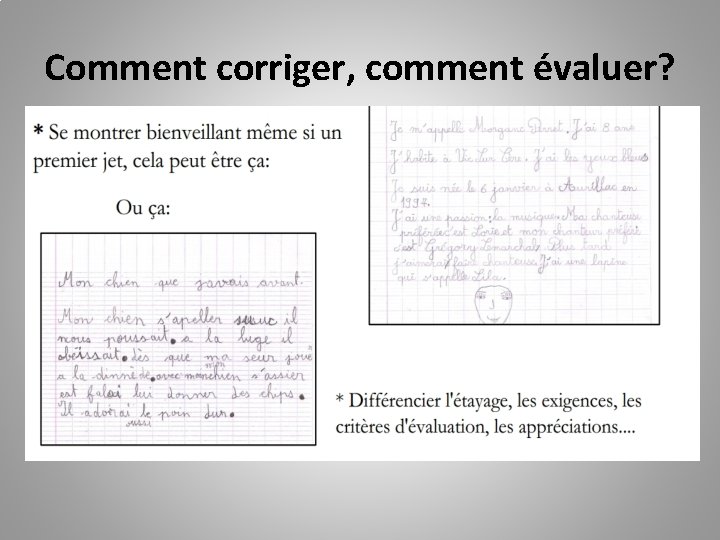 Comment corriger, comment évaluer?
* Se montrer bienveillant même si un
premier jet, cela peut être ça:
Ou ça:
Je m'appelle Morgane Perret. J'ai 8 ans
J'habite à Vic Sur Cère. J'ai les yeux bleus
Je suis née le 6 janvier à Aurillac en
1997.
J'ai une passion: la musique. Ma chanteuse
préférée c'est Lorie et mon chanteur préféré
c'est Grégory Lemarchal. Plus tard
j'aimerai faire chanteuse. J'ai une lapine
qui s'appelle Lila.
Mon chien que javais avant.
Mon chien s'apeller il
nous poussait. a la luge il
obéissait. dès que ma seur joue
a la dinnède. avec mon chien s'assier
est falai lui donner des chips.
Il adorai le pain dur.
aussi
* Différencier l'étayage, les exigences, les
critères d'évaluation, les appréciations....